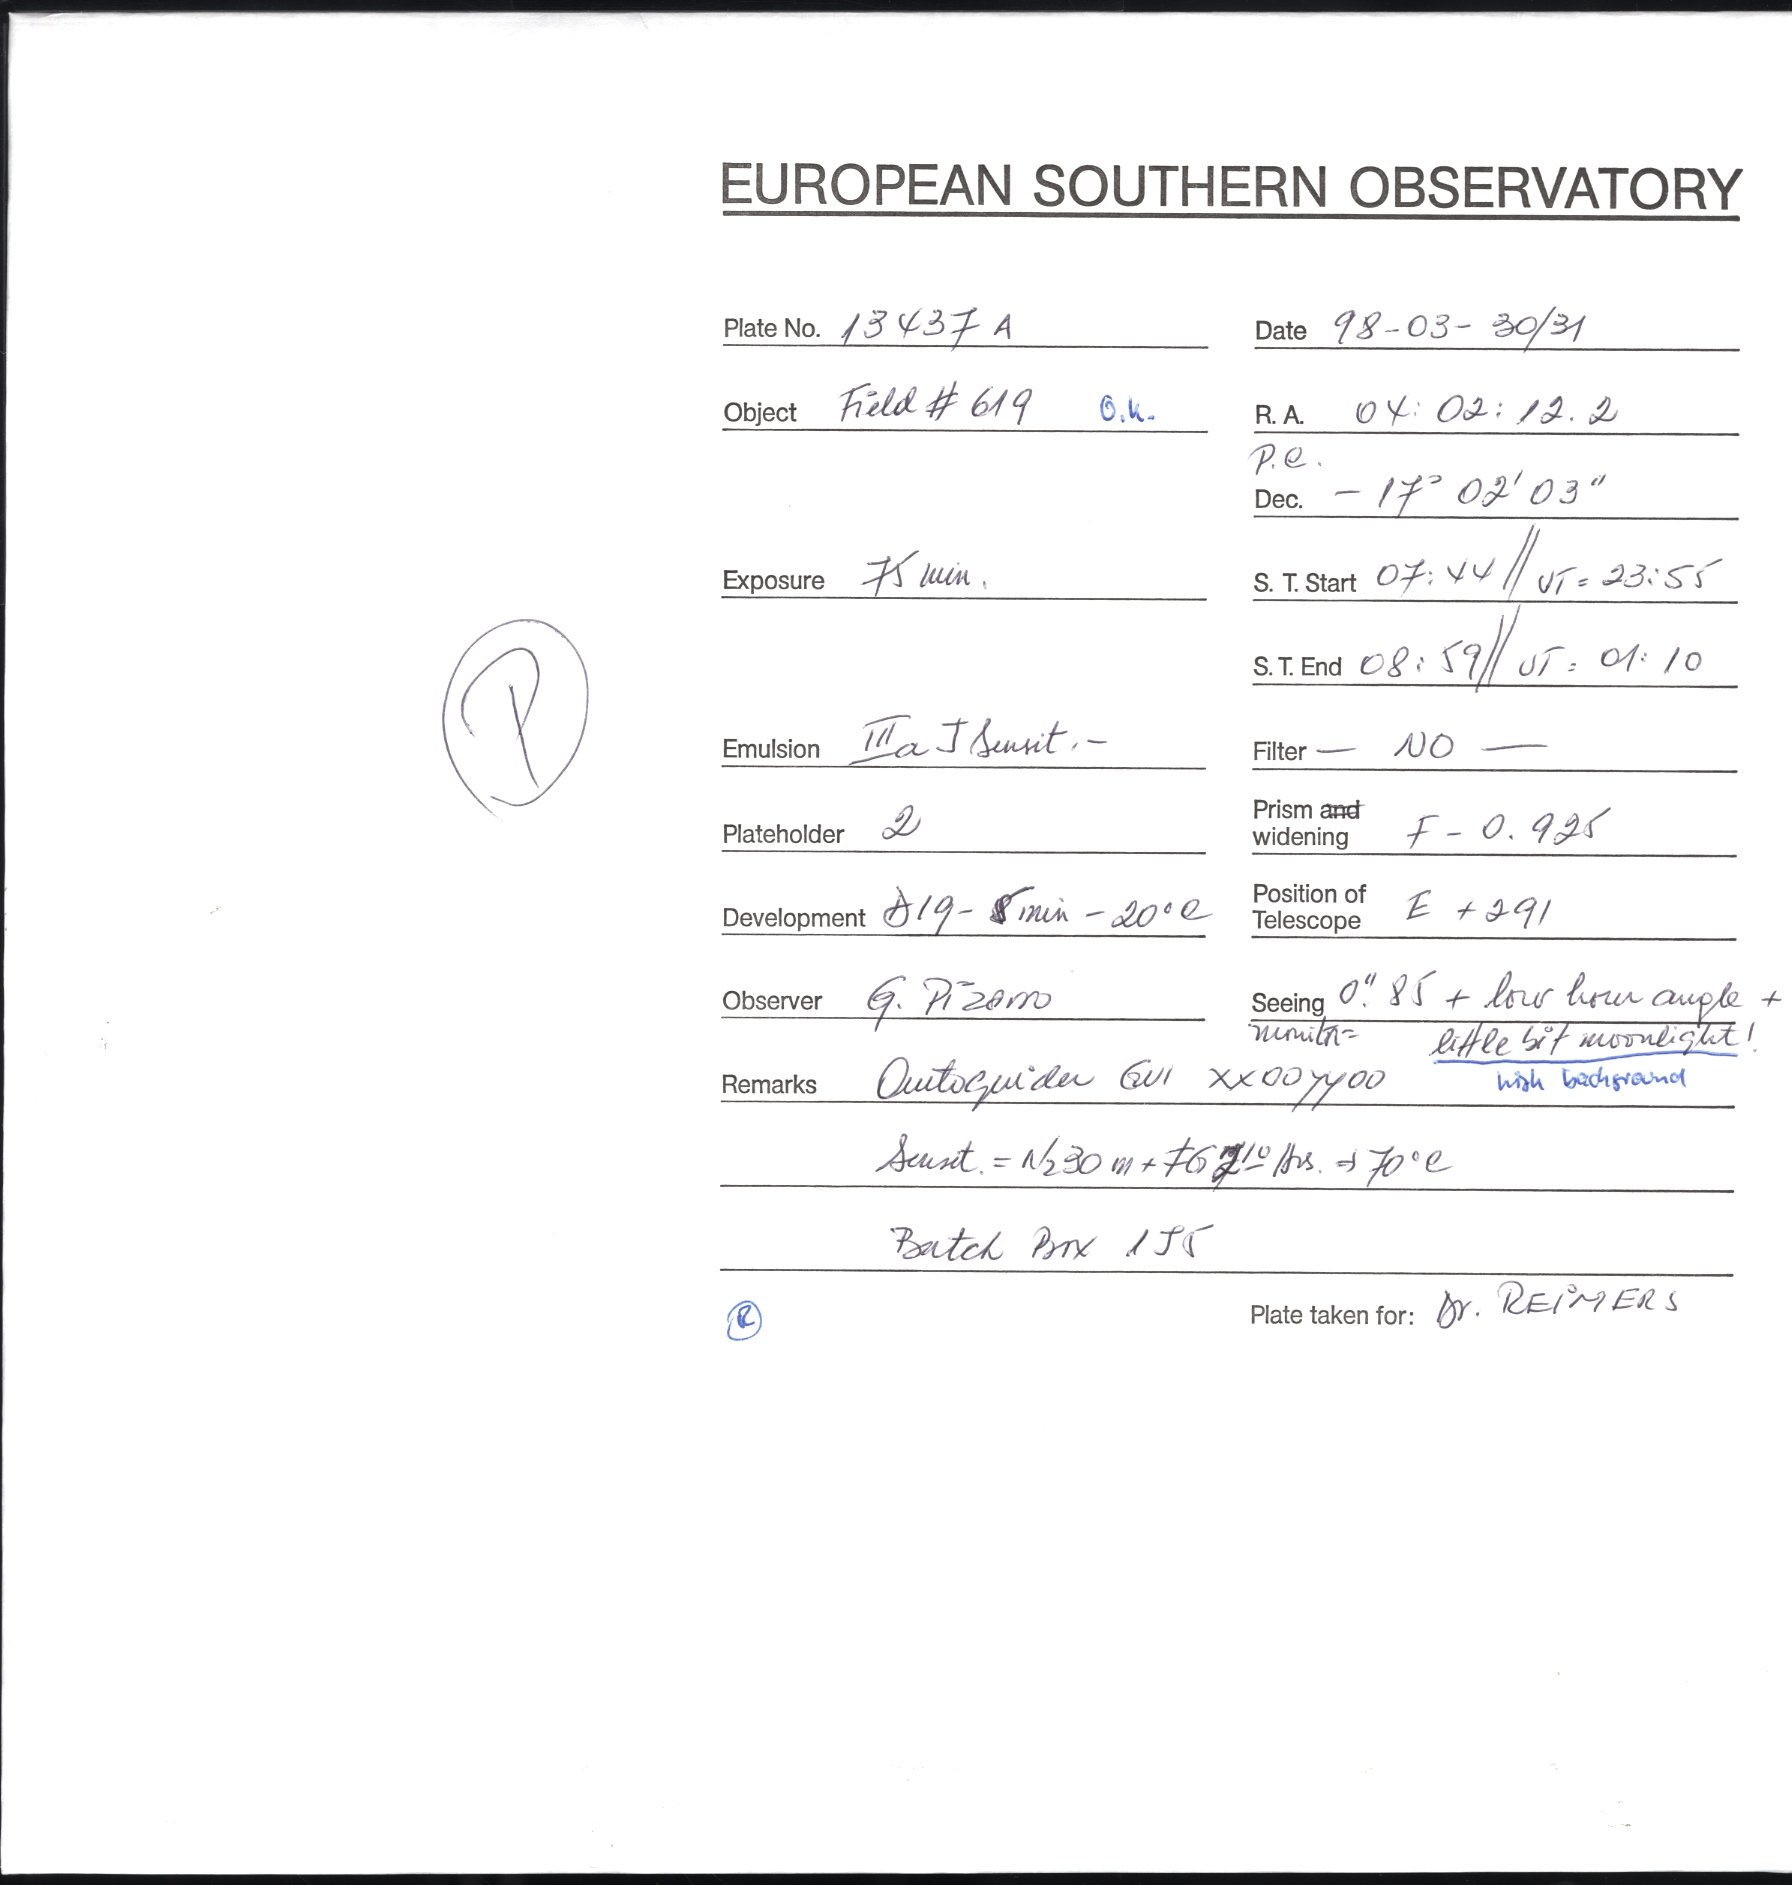 EUROPEAN SOUTHERN OBSERVATORY
Plate No. 13437 A
Date 98-03-30/31
Object Field # 619 O.K.
R. A. 04: 02: 12.2
P.C.
Dec. - 17° 02' 03"
Exposure 75 min.
S. T. Start 07:44 // UT = 23:55
S. T. End 08:59 // UT = 01:10
P
Emulsion III a J Sensit. -
Filter — NO —
Plateholder 2
Prism and widening F - 0.925
Development D19 - 5 min - 20°C
Position of Telescope E + 291
Observer G. Pizarro
Seeing 0".85 + low hour angle +
monitor = little bit moonlight!
high background
Remarks Autoguider GUI XX00YY00
Sensit. = N2 30 m + FG 10 Hrs. ⇒ 70°C
Batch Box 1J5
R
Plate taken for: Dr. REIMERS